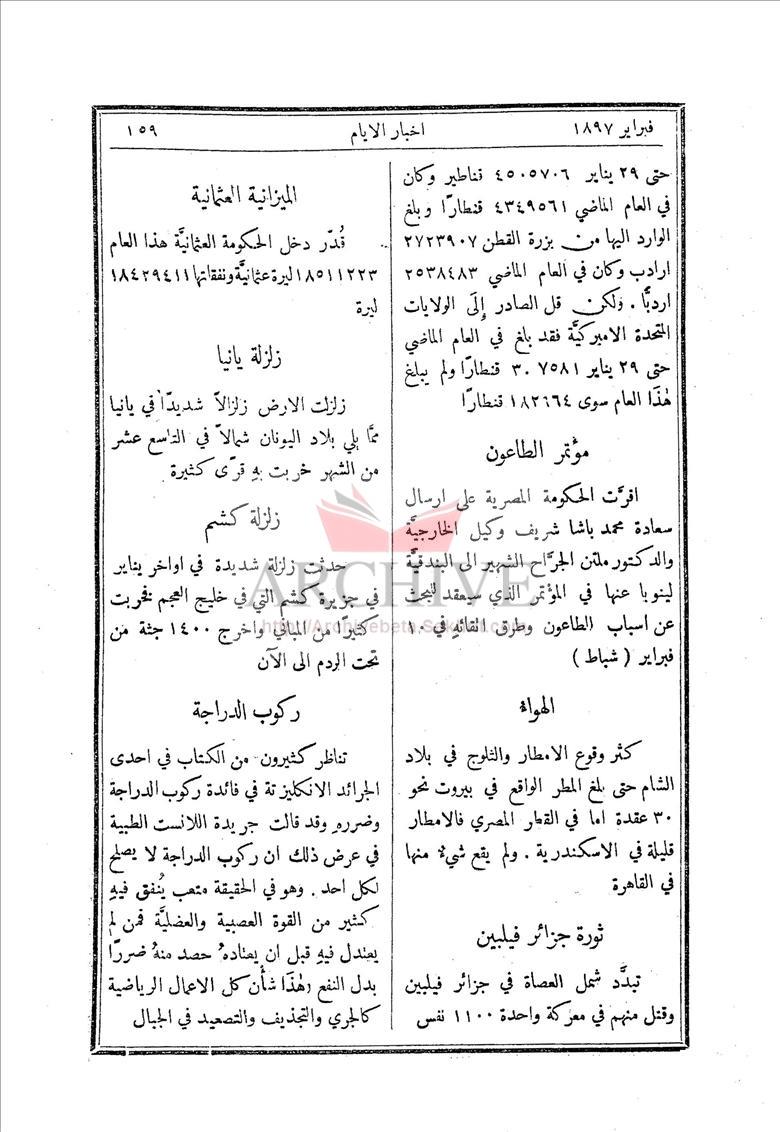 فبراير ١٨٩٧
اخبار الايام
١٥٩
حتى ٢٩ يناير ٤٥٠٥٧٠٦ قناطير وكان
في العام الماضي ٤٣٤٩٥٦١ قنطارًا وبلغ
الوارد اليها من بزرة القطن ٢٧٢٣٩٠٧
ارادب وكان في العام الماضي ٢٥٣٨٤٨٣
اردبًّا . ولكن قل الصادر إِلَى الولايات
المتحدة الاميركيَّة فقد بلغ في العام الماضي
حتى ٢٩ يناير ٣٠٧٥٨١ قنطارًا ولم يبلغ
هٰذا العام سوى ١٨٢٦٦٤ قنطارًا
مؤتمر الطاعون
اقرَّت الحكومة المصرية على ارسال
سعادة محمد باشا شريف وكيل الخارجيَّة
والدكتور ملتن الجرَّاح الشهير الى البندقيَّة
لينوبا عنها في المؤتمر الذي سيعقد للبحث
عن اسباب الطاعون وطرق القائهِ في ١٠
فبراير ( شباط )
الهواء
كثر وقوع الامطار والثلوج في بلاد
الشام حتى بلغ المطر الواقع في بيروت نحو
٣٠ عقدة اما في القطر المصري فالامطار
قليلة في الاسكندرية . ولم يقع شيءٌ منها
في القاهرة
ثورة جزائر فيلبين
تبدَّد شمل العصاة في جزائر فيلبين
وقتل منهم في معركة واحدة ١١٠٠ نفس
الميزانية العثمانية
قُدّر دخل الحكومة العثمانيَّة هذا العام
١٨٥١١٢٢٣ ليرة عثمانيَّة ونفقاتها ١٨٤٢٩٤١١
ليرة
زلزلة يانيا
زلزلت الارض زلزالاً شديدًا في يانيا
ممَّا يلي بلاد اليونان شمالاً في التاسع عشر
من الشهر خربت بهِ قرًى كثيرة
زلزلة كشم
حدثت زلزلة شديدة في اواخر يناير
في جزيرة كشم التي في خليج العجم فخربت
كثيرًا من المباني واخرج ١٤٠٠ جثة من
تحت الردم الى الآن
ركوب الدراجة
تناظر كثيرون من الكتاب في احدى
الجرائد الانكليزية في فائدة ركوب الدراجة
وضرره وقد قالت جريدة اللانست الطبية
في عرض ذلك ان ركوب الدراجة لا يصلح
لكل احد . وهو في الحقيقة متعب يُنفق فيهِ
كثير من القوة العصبية والعضليَّة فمن لم
يعتدل فيهِ قبل ان يعتادهُ حصد منهُ ضررًا
بدل النفع وهٰذا شأْن كل الاعمال الرياضية
كالجري والتجذيف والتصعيد في الجبال
ARCHIVE